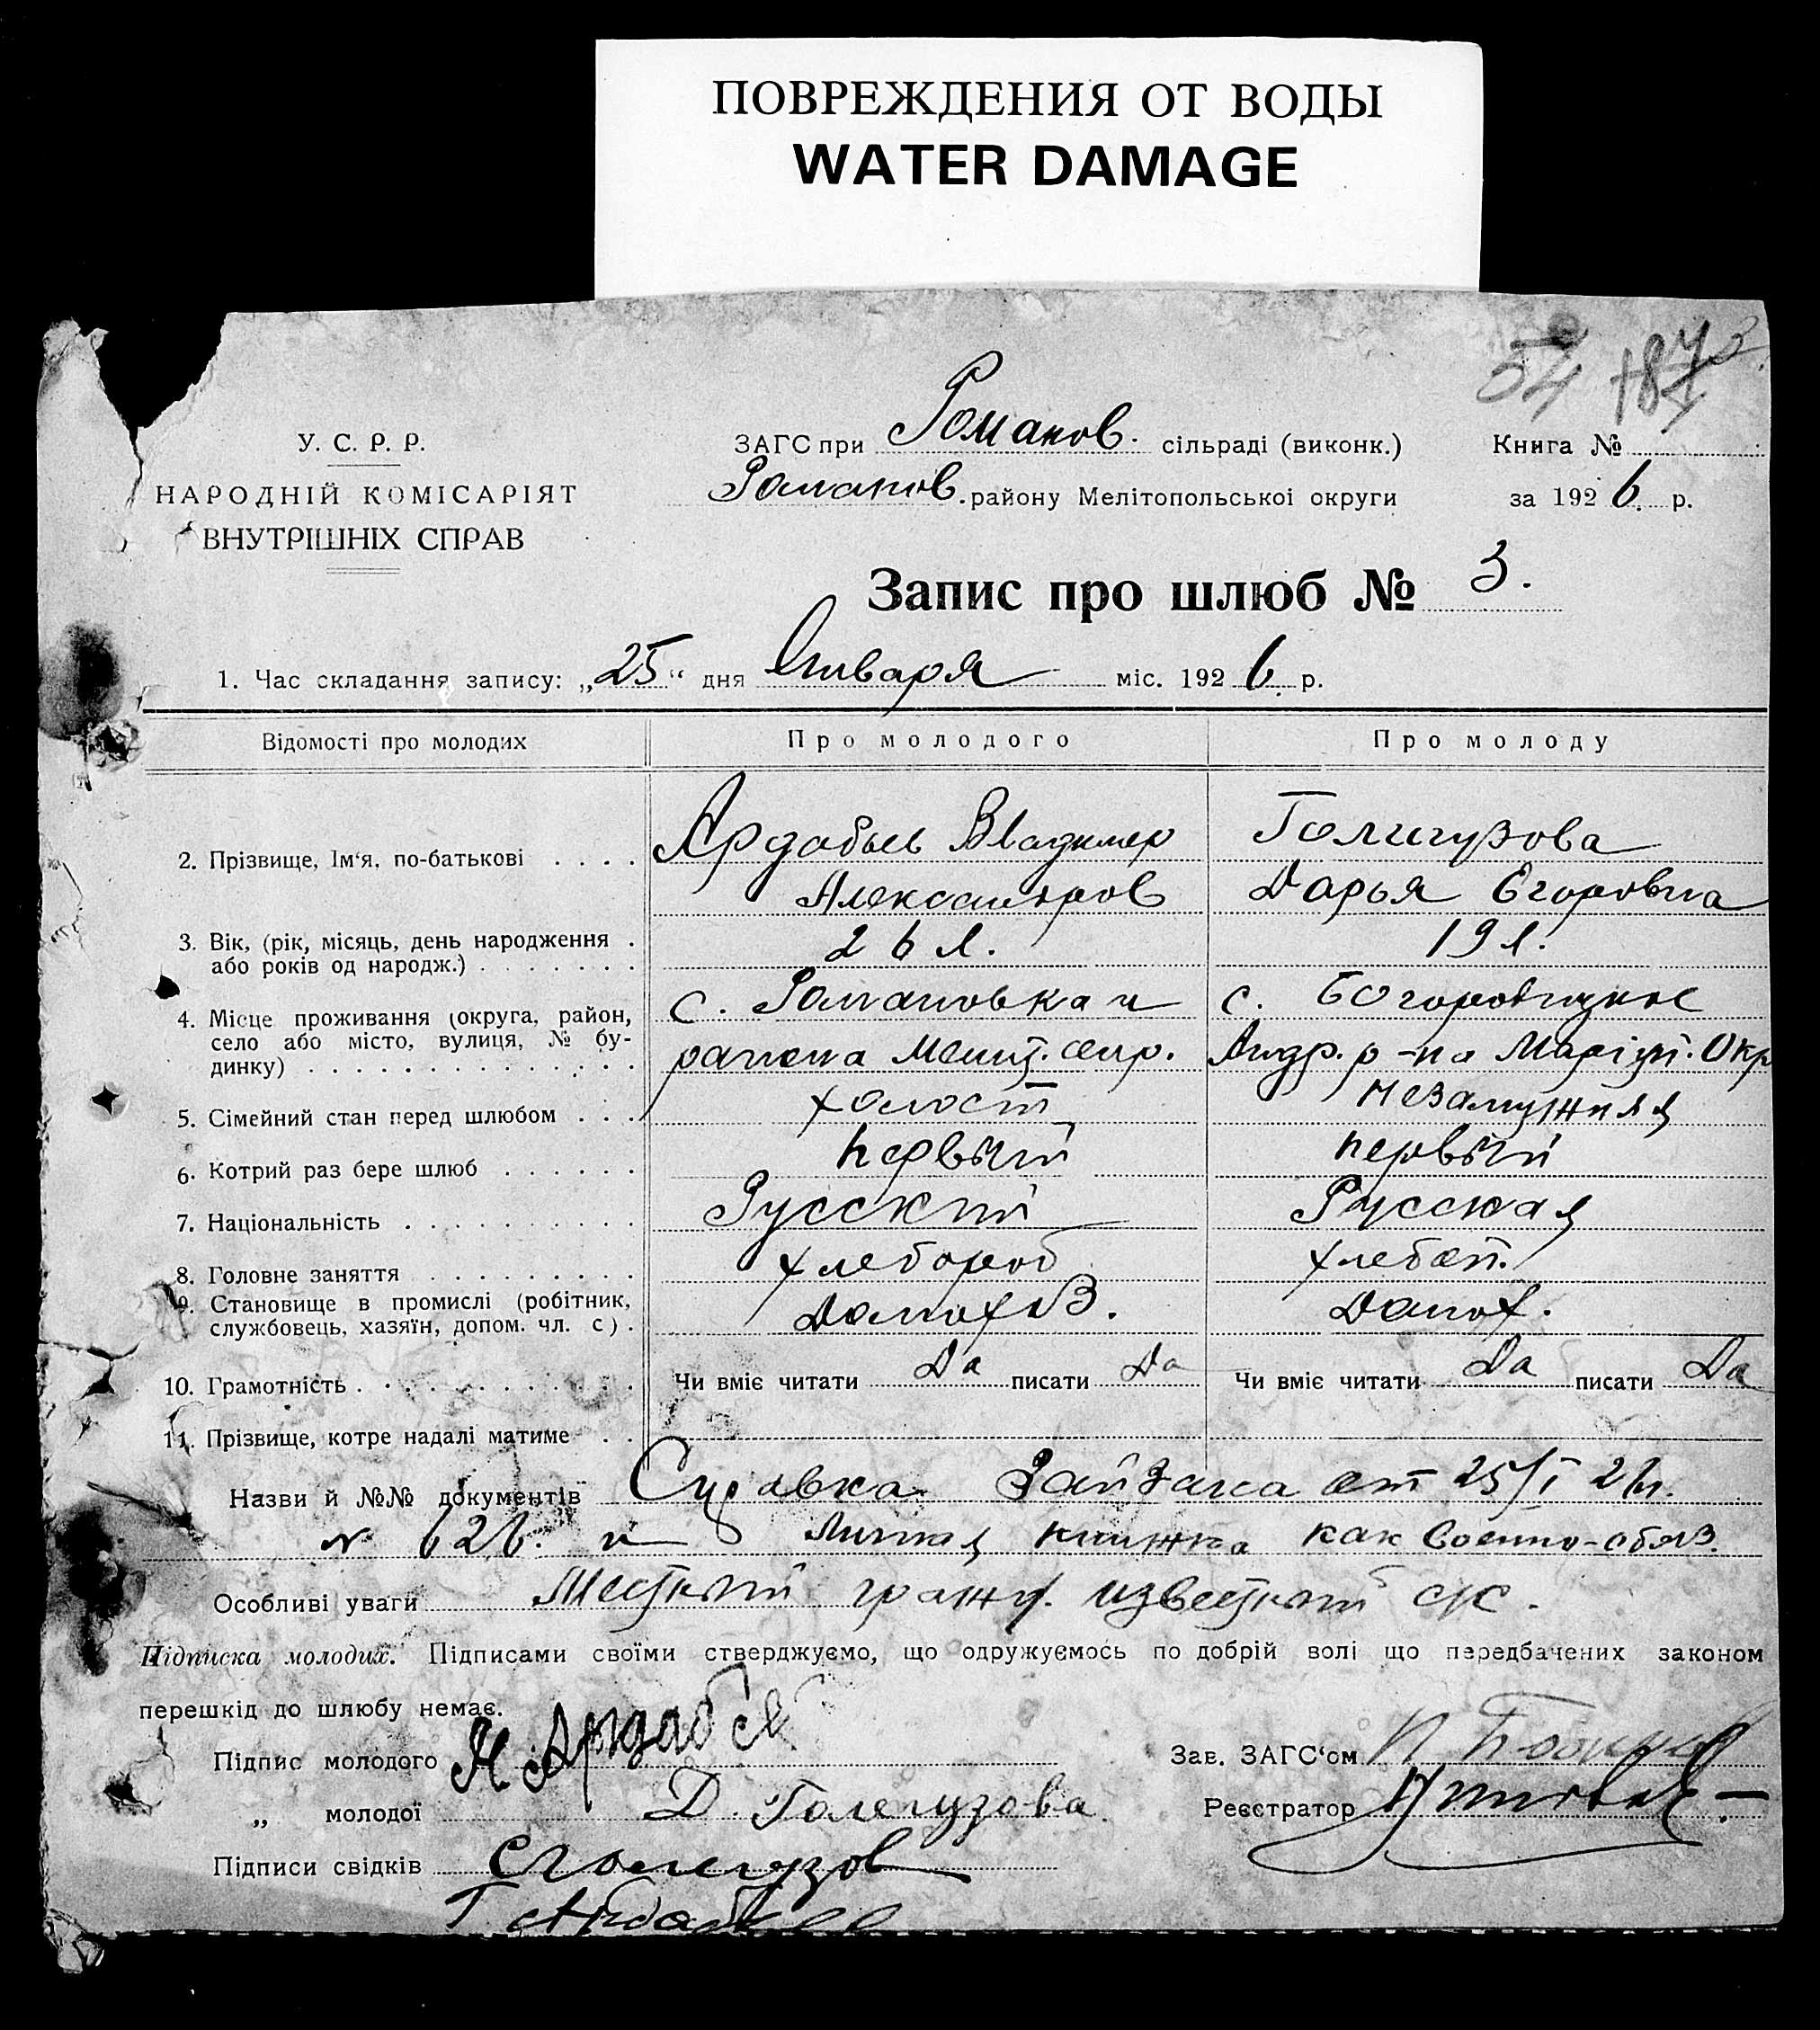 ПОВРЕЖДЕНИЯ ОТ ВОДЫ
WATER DAMAGE
54
У. С. Р. Р.
НАРОДНІЙ КОМІСАРІЯТ
ВНУТРІШНІХ СПРАВ
ЗАГС при Романов. сільраді (виконк.)
Романов. району Мелітопольськоі округи
Книга №
за 1926. р.
Запис про шлюб № 3.
1. Час складання запису: „25“ дня Января міс. 1926. р.
Відомості про молодих Про молодого Про молоду
2. Прізвище, Ім‘я, по-батькові Ардабьев Владимер Голигузова
Александров Дарья Егоровна
3. Вік, (рік, місяць, день народження 26 л. 19 л.
або років од народж.)
4. Місце проживання (округа, район, с. Романовка с.
село або місто, вулиця, № бу- района Андр. р-на Маріуп. Окр
динку)
5. Сімейний стан перед шлюбом холост незамужняя
6. Котрий раз бере шлюб первый первый
7. Національність Русский Русская
8. Головне заняття хлебороб хлебоп.
9. Становище в промислі (робітник, Домохоз. Домох.
службовець, хазяїн, допом. чл. с)
10. Грамотність Чи вміє читати Да писати Да Чи вміє читати Да писати Да
11. Прізвище, котре надалі матиме
Назви й №№ документів Справка Райзагса от 25/I 26г.
№ 626. и Личная книжка как Военно-обяз.
Особливі уваги Местный гражд. известный с/с.
Підписка молодих. Підписами своїми стверджуємо, що одружуємось по добрій волі що передбачених законом
перешкід до шлюбу немає.
Підпис молодого
„ молодої Д. Голегузова
Підписи свідків Голегузов
Зав. ЗАГС‘ом
Реєстратор